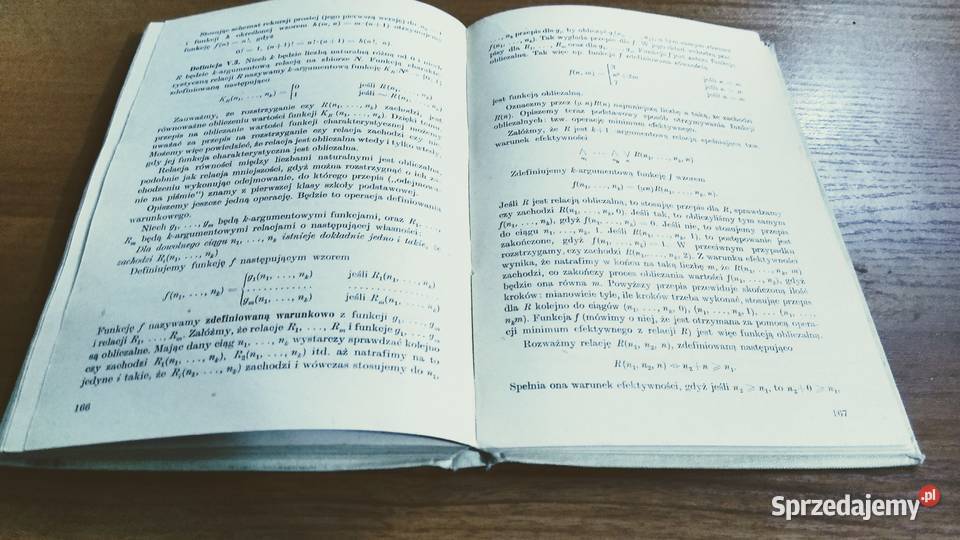 Stosując schemat rekursji prostej (jego pierwszą wersję) do
i funkcji h określonej wzorem h(m, n) = m·(n+1) otrzymujemy
funkcję f(n) = n!, gdyż
0! = 1, (n+1)! = n!·(n+1) = h(n!, n)
Definicja V.3. Niech k będzie liczbą naturalną różną od 0 i niech
R będzie k-argumentową relacją na zbiorze N. Funkcją charakterystyczną relacji R nazywamy k-argumentową funkcję
zdefiniowaną następująco
Zauważmy, że rozstrzyganie czy R(n₁, ..., nₖ) zachodzi, jest
równoważne obliczeniu wartości funkcji Dzięki temu
przepis na obliczanie wartości funkcji charakterystycznej możemy
uważać za przepis na rozstrzyganie czy relacja zachodzi czy nie.
Możemy więc powiedzieć, że relacja jest obliczalna wtedy i tylko wtedy,
gdy jej funkcja charakterystyczna jest obliczalna.
Relacja równości między liczbami naturalnymi jest obliczalna,
podobnie jak relacja mniejszości, gdyż można rozstrzygnąć o ich
chodzeniu wykonując odejmowanie, do którego przepis („odejmowanie na piśmie") znamy z pierwszej klasy szkoły podstawowej.
Opiszemy jeszcze jedną operację. Będzie to operacja definiowania
warunkowego.
Niech g₁, ..., gₘ będą k-argumentowymi funkcjami, oraz R₁, ...
Rₘ będą k-argumentowymi relacjami o następującej własności:
Dla dowolnego ciągu n₁, ..., nₖ istnieje dokładnie jedno i takie, że
zachodzi Rᵢ(n₁, ..., nₖ)
Definiujemy funkcję f następującym wzorem
g₁(n₁, ..., nₖ) jeśli R₁(n₁, ..., nₖ)
f(n₁, ..., nₖ) = { ........... ...........
gₘ(n₁, ..., nₖ) jeśli Rₘ(n₁, ..., nₖ)
Funkcję f nazywamy zdefiniowaną warunkowo z funkcji g₁, ..., gₘ
i relacji R₁, ..., Rₘ. Załóżmy, że relacje R₁, ..., Rₘ i funkcje g₁, ..., gₘ
są obliczalne. Mając dany ciąg n₁, ..., nₖ wystarczy sprawdzać kolejno
czy zachodzi R₁(n₁, ..., nₖ), R₂(n₁, ..., nₖ) itd. aż natrafimy na to
jedyne i takie, że Rᵢ(n₁, ..., nₖ) zachodzi i wówczas stosujemy do n₁,
166
..., nₖ przepis dla gᵢ by obliczyć
Tak wygląda przepis dla f.
oraz dla
obliczalną. Tak więc np. funkcja f zdefiniowana
f(n, m) =
jest funkcją obliczalną.
Oznaczmy przez (μ n)R(n) najmniejszą liczbę n taką, że zachodzi
R(n). Opiszemy teraz podstawowy sposób otrzymywania funkcji
obliczalnych: tzw. operację minimum efektywnego.
Załóżmy, że R jest k+1 argumentową relacją spełniającą tzw.
warunek efektywności
⋀ ... ⋀ ⋁ R(n₁, ..., nₖ, n)
Zdefiniujemy k-argumentową funkcję f wzorem
f(n₁, ..., nₖ) = (μn)R(n₁, ..., nₖ, n).
Jeśli R jest relacją obliczalną, to stosując przepis dla R, sprawdzamy
czy zachodzi R(n₁, ..., nₖ, 0). Jeśli tak, to obliczyliśmy tym samym
f(n₁, ..., nₖ), gdyż f(n₁, ..., nₖ) = 0. Jeśli nie, to stosujemy przepis
do ciągu n₁, ..., nₖ, 1. Jeśli R(n₁, ..., nₖ, 1), to postępowanie jest
zakończone, gdyż f(n₁, ..., nₖ) = 1. W przeciwnym przypadku
rozstrzygamy czy zachodzi R(n₁, ..., nₖ, 2). Z warunku efektywności
wynika, że natrafimy w końcu na taką liczbę m, że R(n₁, ..., nₖ, m)
zachodzi, co zakończy proces obliczania wartości f(n₁, ..., nₖ), gdyż
będzie ona równa m. Powyższy przepis przewiduje skończoną ilość
kroków: mianowicie tyle, ile kroków trzeba wykonać, stosując przepis
dla R kolejno do ciągów (n₁, ..., nₖ, 0), (n₁, ..., nₖ, 1), ... (n₁, ...,
nₖ, m). Funkcja f (mówimy o niej, że jest otrzymana za pomocą operacji minimum efektywnego z relacji R) jest więc funkcją obliczalną.
Rozważmy relację R(n₁, n₂, n), zdefiniowaną następująco
R(n₁, n₂, n) ⇔ n₂+n ⩾ n₁.
Spełnia ona warunek efektywności, gdyż jeśli n₂ ⩾ n₁, to n₂+0 ⩾ n₁,
167
Sprzedajemy.pl